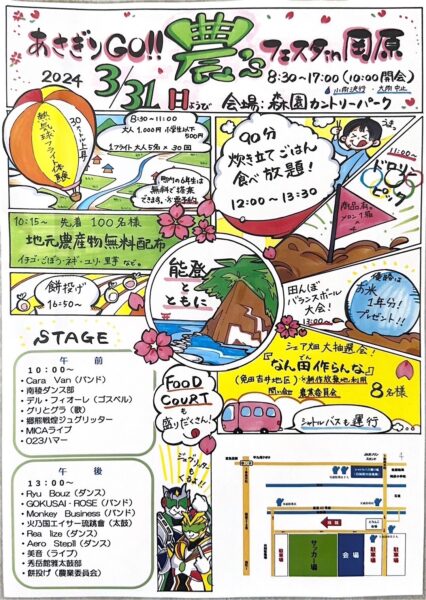 あさぎりGO!! 農's フェスタin岡原
2024 3/31 日ようび
8:30〜17:00(10:00開会)
小雨決行・大雨中止
会場:森園カントリーパーク
熱気球フライト体験
30メートル上昇
8:30〜11:00
大人1,000円 小学生以下500円
1フライト大人5名×30回
90分
炊き立てごはん
食べ放題!
12:00〜13:30
11:00〜
ドロリンピック
10:15〜 先着100名様
地元農産物無料配布
イチゴ・ごぼう・ネギ・ユリ・里芋など。
餅投げ
16:50〜
能登
とともに
田んぼ
バランスボール
大会!
13:00〜
優勝は
お米
1年分!
プレゼント!!
シェア畑大抽選会!
『なん田作らんな』
(免田吉井地区)
※耕作放棄地利用
問い合せ 農業委員会
8名様
シャトルバスも運行
FOOD
COURTも
盛りだくさん!
ジャグリッターもくるよ!!
STAGE
午前
10:00〜
・Cara Van(バンド)
・南稜ダンス部
・デル・フィオーレ(ゴスペル)
・グリとグラ(歌)
・郷熊戦煌ジュグリッター
・MICAライブ
・023ハマー
午後
13:00〜
・Ryu Bouz(ダンス)
・GOKUSAI・ROSE(バンド)
・Monkey Business(バンド)
・火乃国エイサー琉鷂會(太鼓)
・Rea lize(ダンス)
・Aero StepⅡ(ダンス)
・美音(ライブ)
・秀岳館雅太鼓部
・餅投げ(農業委員会)
サッカー場
会場
駐車場
駐車場